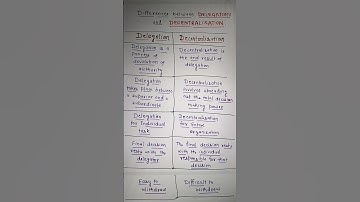 Difference between DELEGATION
and DECENTRALISATION
Delegation
Decentralisation
Delegation is a
process of
devolution of
authority
Decentralisation is
the end result of
delegation
Delegation
takes place between
a superior and a
subordinate
Decentralisation
involves spreading
out the total decision
making power
Delegation
for Individual
task
Decentralisation
for Entire
organisation
Final decision
rests with the
delegator
The final decision rests
with the individual
responsible for that
decision
Easy to
withdraw
Difficult to
withdraw